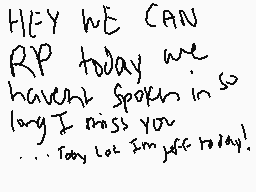 HEY WE CAN
RP today we
havent spoken in so
long I miss you
... Toby lol Im jeff today!